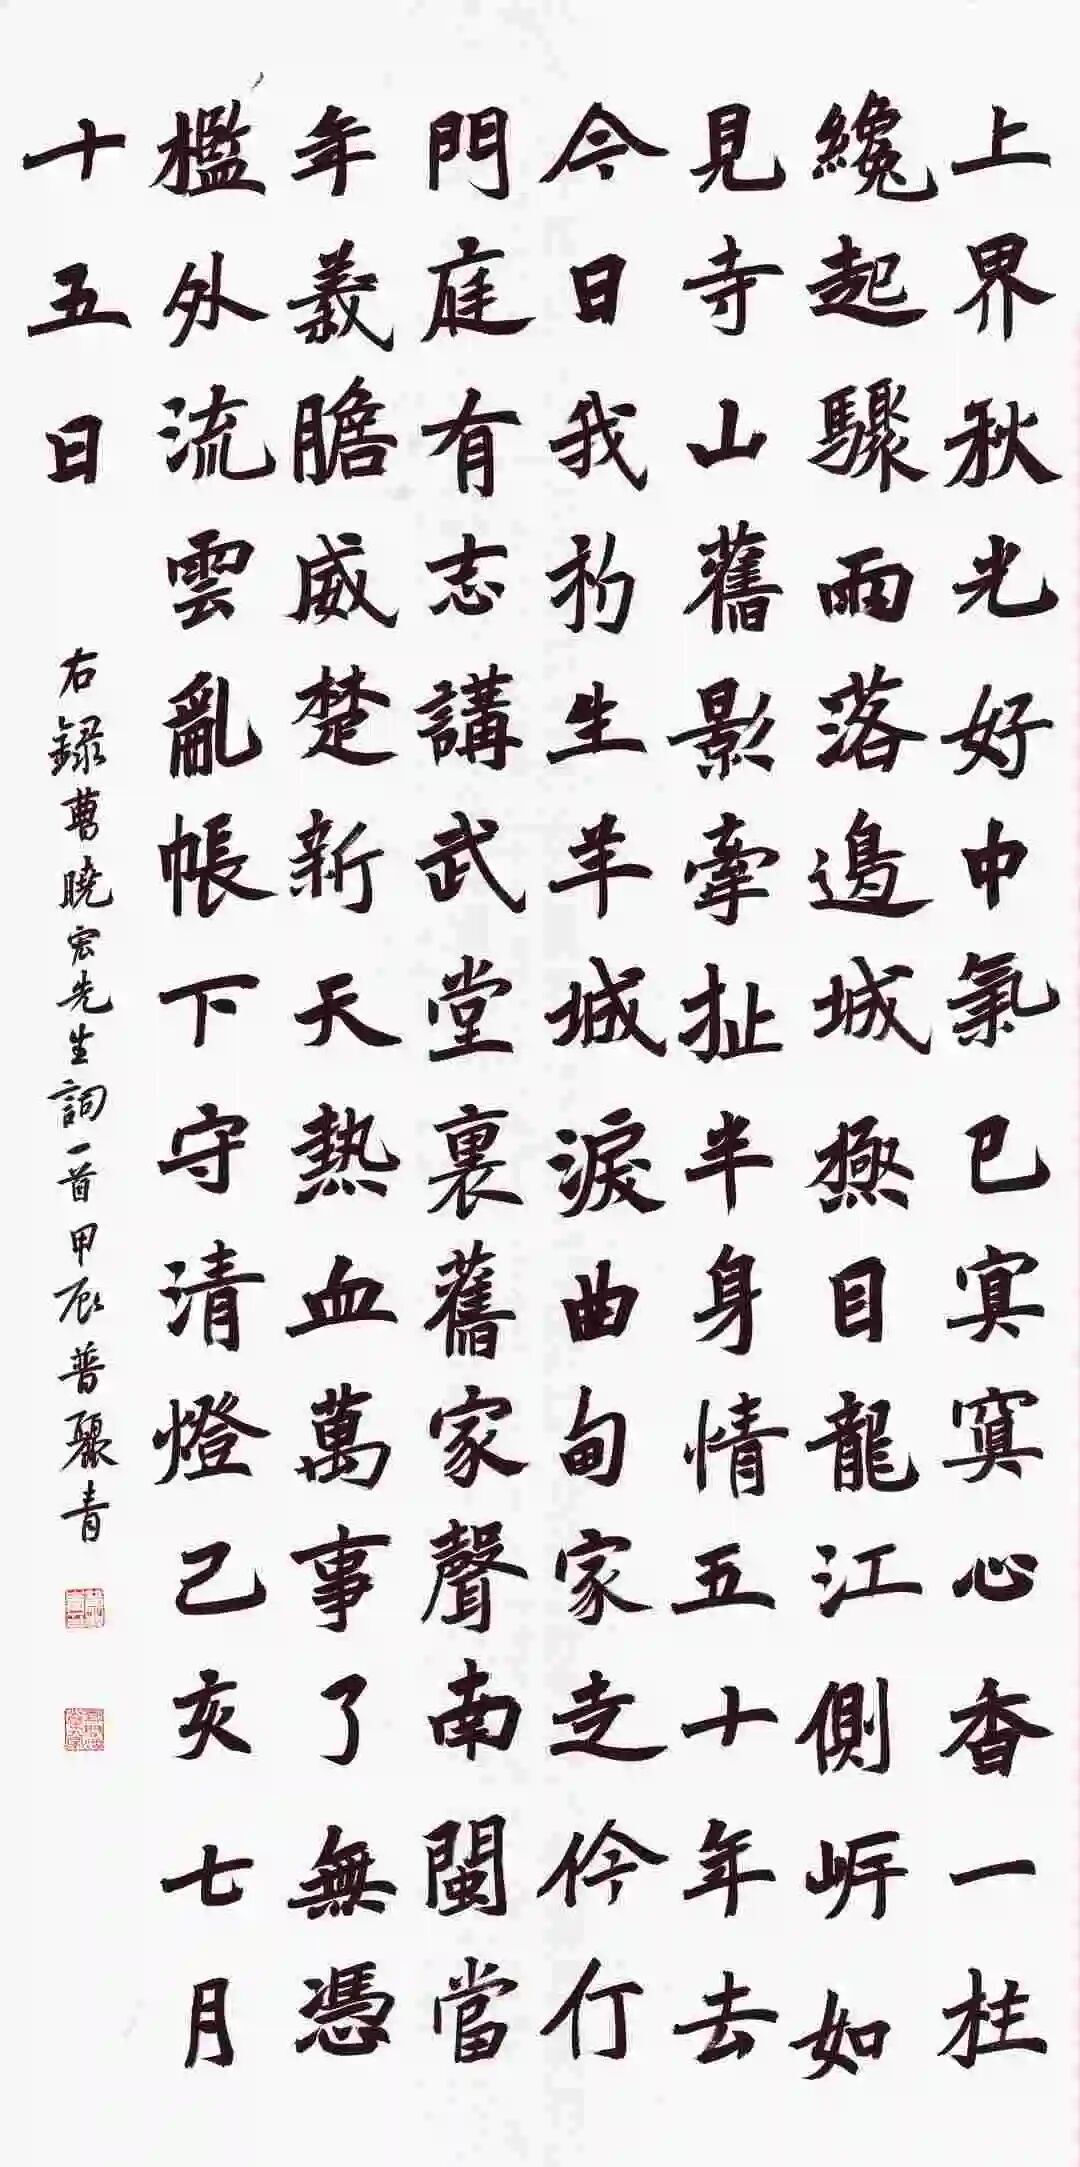 上界秋光好中氣已冥冥心香一柱
纔起驟雨落邊城極目龍江側岍如
見寺山舊影牽扯半身情五十年去
今日我初生羊城淚曲甸家走伶仃
門庭有志講武堂裏舊家聲南閩當
年義膽威楚新天熱血萬事了無憑
檻外流雲亂帳下守清燈己亥七月
十五日
右録曹曉宏先生詞一首甲辰普青